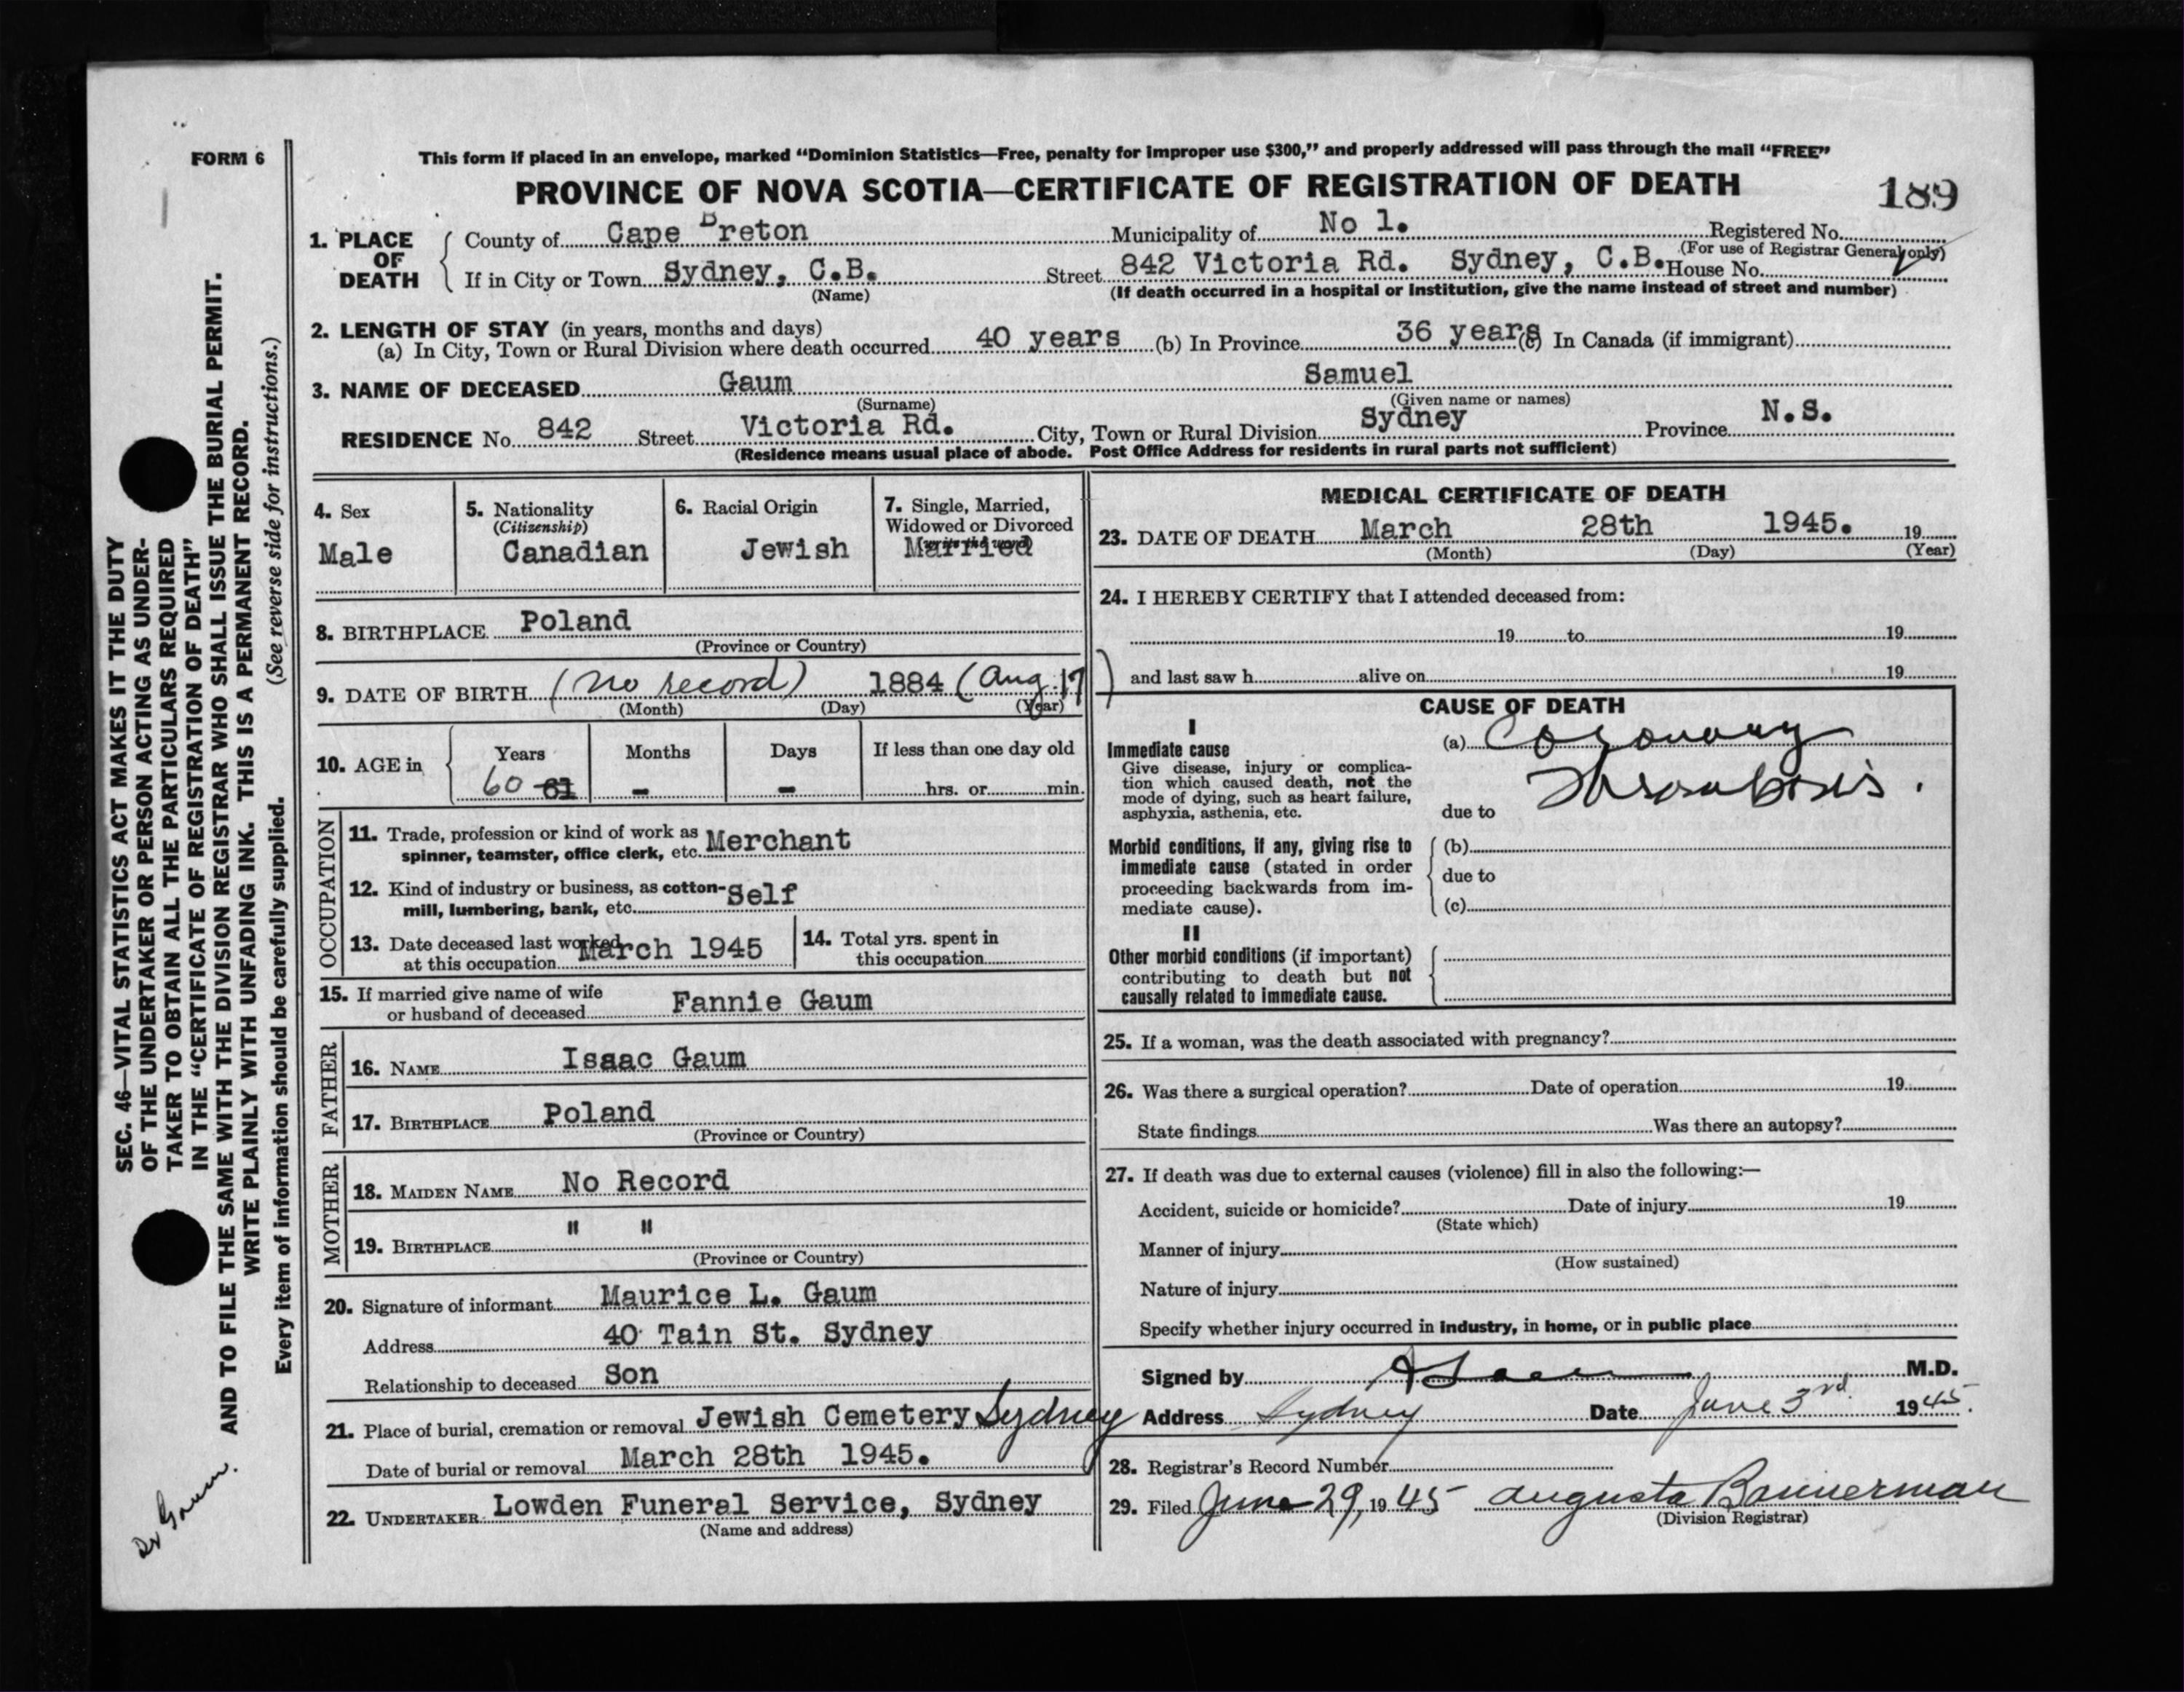 FORM 6
This form if placed in an envelope, marked “Dominion Statistics—Free, penalty for improper use $300,” and properly addressed will pass through the mail “FREE”
PROVINCE OF NOVA SCOTIA—CERTIFICATE OF REGISTRATION OF DEATH
189
1. PLACE OF DEATH
County of Cape Breton Municipality of No 1. Registered No.
(For use of Registrar General only)
If in City or Town Sydney, C.B. Street 842 Victoria Rd. Sydney, C.B. House No.
(Name) (If death occurred in a hospital or institution, give the name instead of street and number)
2. LENGTH OF STAY (in years, months and days)
(a) In City, Town or Rural Division where death occurred 40 years (b) In Province 36 years (c) In Canada (if immigrant)
3. NAME OF DECEASED Gaum Samuel
(Surname) (Given name or names)
RESIDENCE No. 842 Street Victoria Rd. City, Town or Rural Division Sydney Province N.S.
(Residence means usual place of abode. Post Office Address for residents in rural parts not sufficient)
4. Sex
Male
5. Nationality
(Citizenship)
Canadian
6. Racial Origin
Jewish
7. Single, Married,
Widowed or Divorced
Married
8. BIRTHPLACE Poland
(Province or Country)
9. DATE OF BIRTH (no record) 1884 (Aug. 17)
(Month) (Day) (Year)
10. AGE in
Years Months Days If less than one day old
60 61 - - hrs. or min.
OCCUPATION
11. Trade, profession or kind of work as
spinner, teamster, office clerk, etc. Merchant
12. Kind of industry or business, as cotton-
mill, lumbering, bank, etc. Self
13. Date deceased last worked
at this occupation March 1945
14. Total yrs. spent in
this occupation
15. If married give name of wife
or husband of deceased Fannie Gaum
FATHER
16. NAME Isaac Gaum
17. BIRTHPLACE Poland
(Province or Country)
MOTHER
18. MAIDEN NAME No Record
19. BIRTHPLACE " "
(Province or Country)
20. Signature of informant Maurice L. Gaum
Address 40 Tain St. Sydney
Relationship to deceased Son
21. Place of burial, cremation or removal Jewish Cemetery Sydney
Date of burial or removal March 28th 1945.
22. UNDERTAKER Lowden Funeral Service, Sydney
(Name and address)
MEDICAL CERTIFICATE OF DEATH
23. DATE OF DEATH March 28th 1945. 19
(Month) (Day) (Year)
24. I HEREBY CERTIFY that I attended deceased from:
19 to 19
and last saw h alive on 19
CAUSE OF DEATH
I
Immediate cause
Give disease, injury or complica-
tion which caused death, not the
mode of dying, such as heart failure,
asphyxia, asthenia, etc.
(a) Coronary
due to Thrombosis.
Morbid conditions, if any, giving rise to
immediate cause (stated in order
proceeding backwards from im-
mediate cause).
(b)
due to
(c)
II
Other morbid conditions (if important)
contributing to death but not
causally related to immediate cause.
25. If a woman, was the death associated with pregnancy?
26. Was there a surgical operation? Date of operation 19
State findings Was there an autopsy?
27. If death was due to external causes (violence) fill in also the following:—
Accident, suicide or homicide? Date of injury 19
(State which)
Manner of injury
(How sustained)
Nature of injury
Specify whether injury occurred in industry, in home, or in public place
Signed by M.D.
Address Sydney Date June 3rd 1945.
28. Registrar's Record Number
29. Filed June 29, 1945 Augusta Bannerman
(Division Registrar)
SEC. 46—VITAL STATISTICS ACT MAKES IT THE DUTY
OF THE UNDERTAKER OR PERSON ACTING AS UNDER-
TAKER TO OBTAIN ALL THE PARTICULARS REQUIRED
IN THE “CERTIFICATE OF REGISTRATION OF DEATH”
AND TO FILE THE SAME WITH THE DIVISION REGISTRAR WHO SHALL ISSUE THE BURIAL PERMIT.
WRITE PLAINLY WITH UNFADING INK. THIS IS A PERMANENT RECORD.
Every item of information should be carefully supplied. (See reverse side for instructions.)
Dr Gaum.